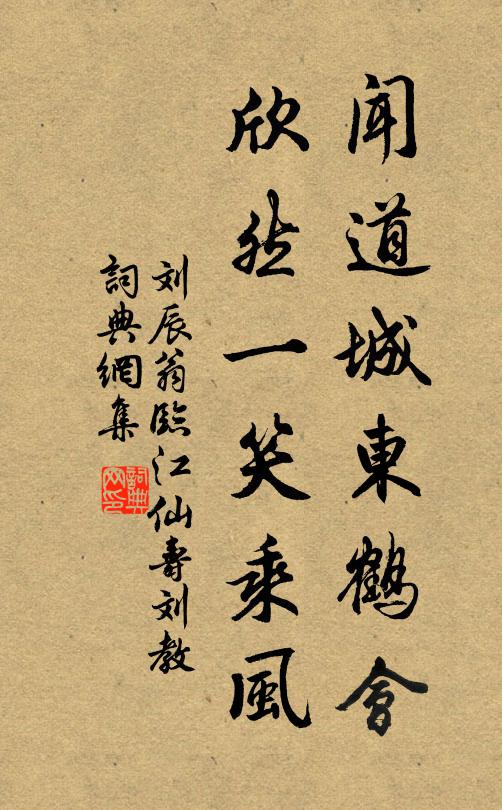 闻道城東鶴會
欣然一笑乘風
刘辰翁臨江仙壽刘教
詞典網集
詞典网印